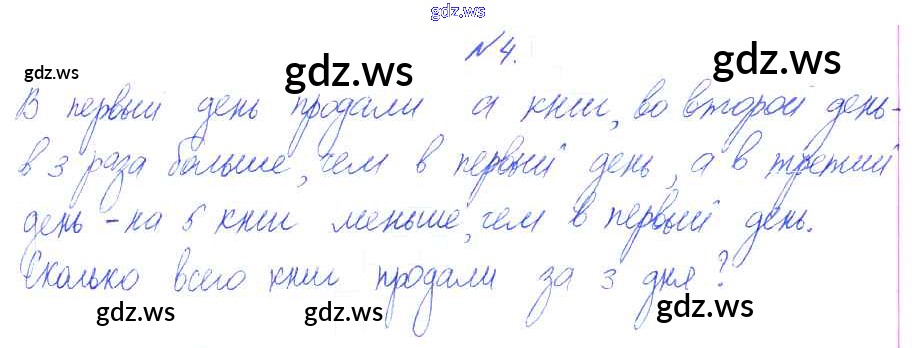 gdz.ws
№4.
gdz.ws gdz.ws gdz.ws
В первый день продали а книг, во второй день -
в 3 раза больше, чем в первый день, а в третий
день - на 5 книг меньше, чем в первый день.
Сколько всего книг продали за 3 дня?
gdz.ws gdz.ws gdz.ws